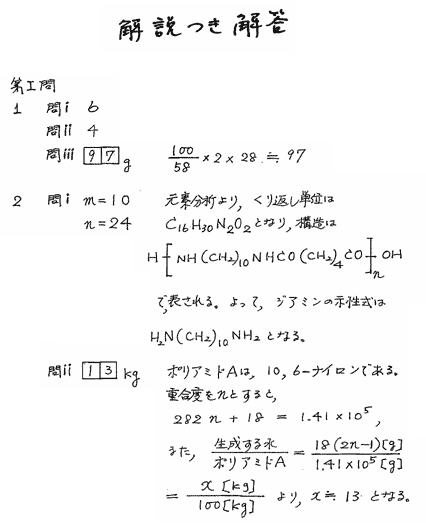 解説つき解答
第I問
1 問i 6
問ii 4
問iii 97g 100/58 × 2 × 28 ≒ 97
2 問i m=10 元素分析より, くり返し単位は
n=24 C16H30N2O2となり, 構造は
H[NH(CH2)10NHCO(CH2)4CO]nOH
で表される。よって, ジアミンの示性式は
H2N(CH2)10NH2となる。
問ii 13kg ポリアミドAは, 10, 6-ナイロンである。
重合度をnとすると,
282n + 18 = 1.41×10^5,
また, 生成する水/ポリアミドA = 18(2n-1)[g]/1.41×10^5[g]
= x[kg]/100[kg] より, x≒13 となる。